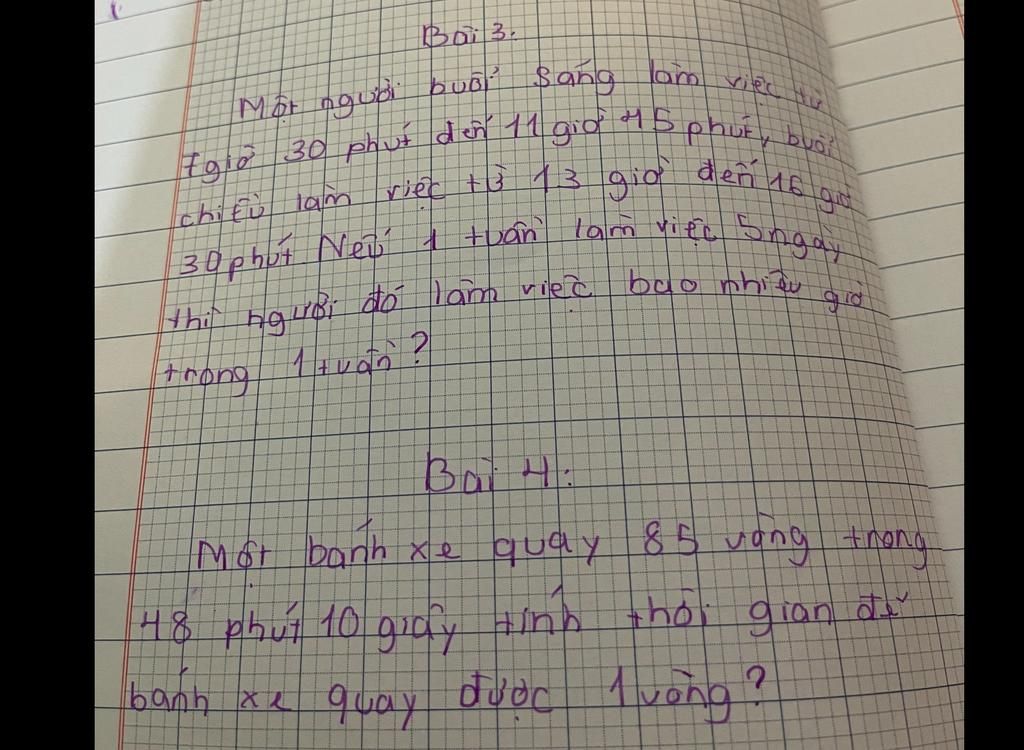 Bài 3.
Một người buổi sáng làm việc từ
7giờ 30 phút đến 11 giờ 45 phút, buổi
chiều làm việc từ 13 giờ đến 16 giờ
30 phút Nếu 1 tuần làm việc 5 ngày,
thì người đó làm việc bao nhiêu giờ
trong 1 tuần?
Bài 4:
Một bánh xe quay 85 vòng trong
48 phút 10 giây tính thời gian để
bánh xe quay được 1 vòng?